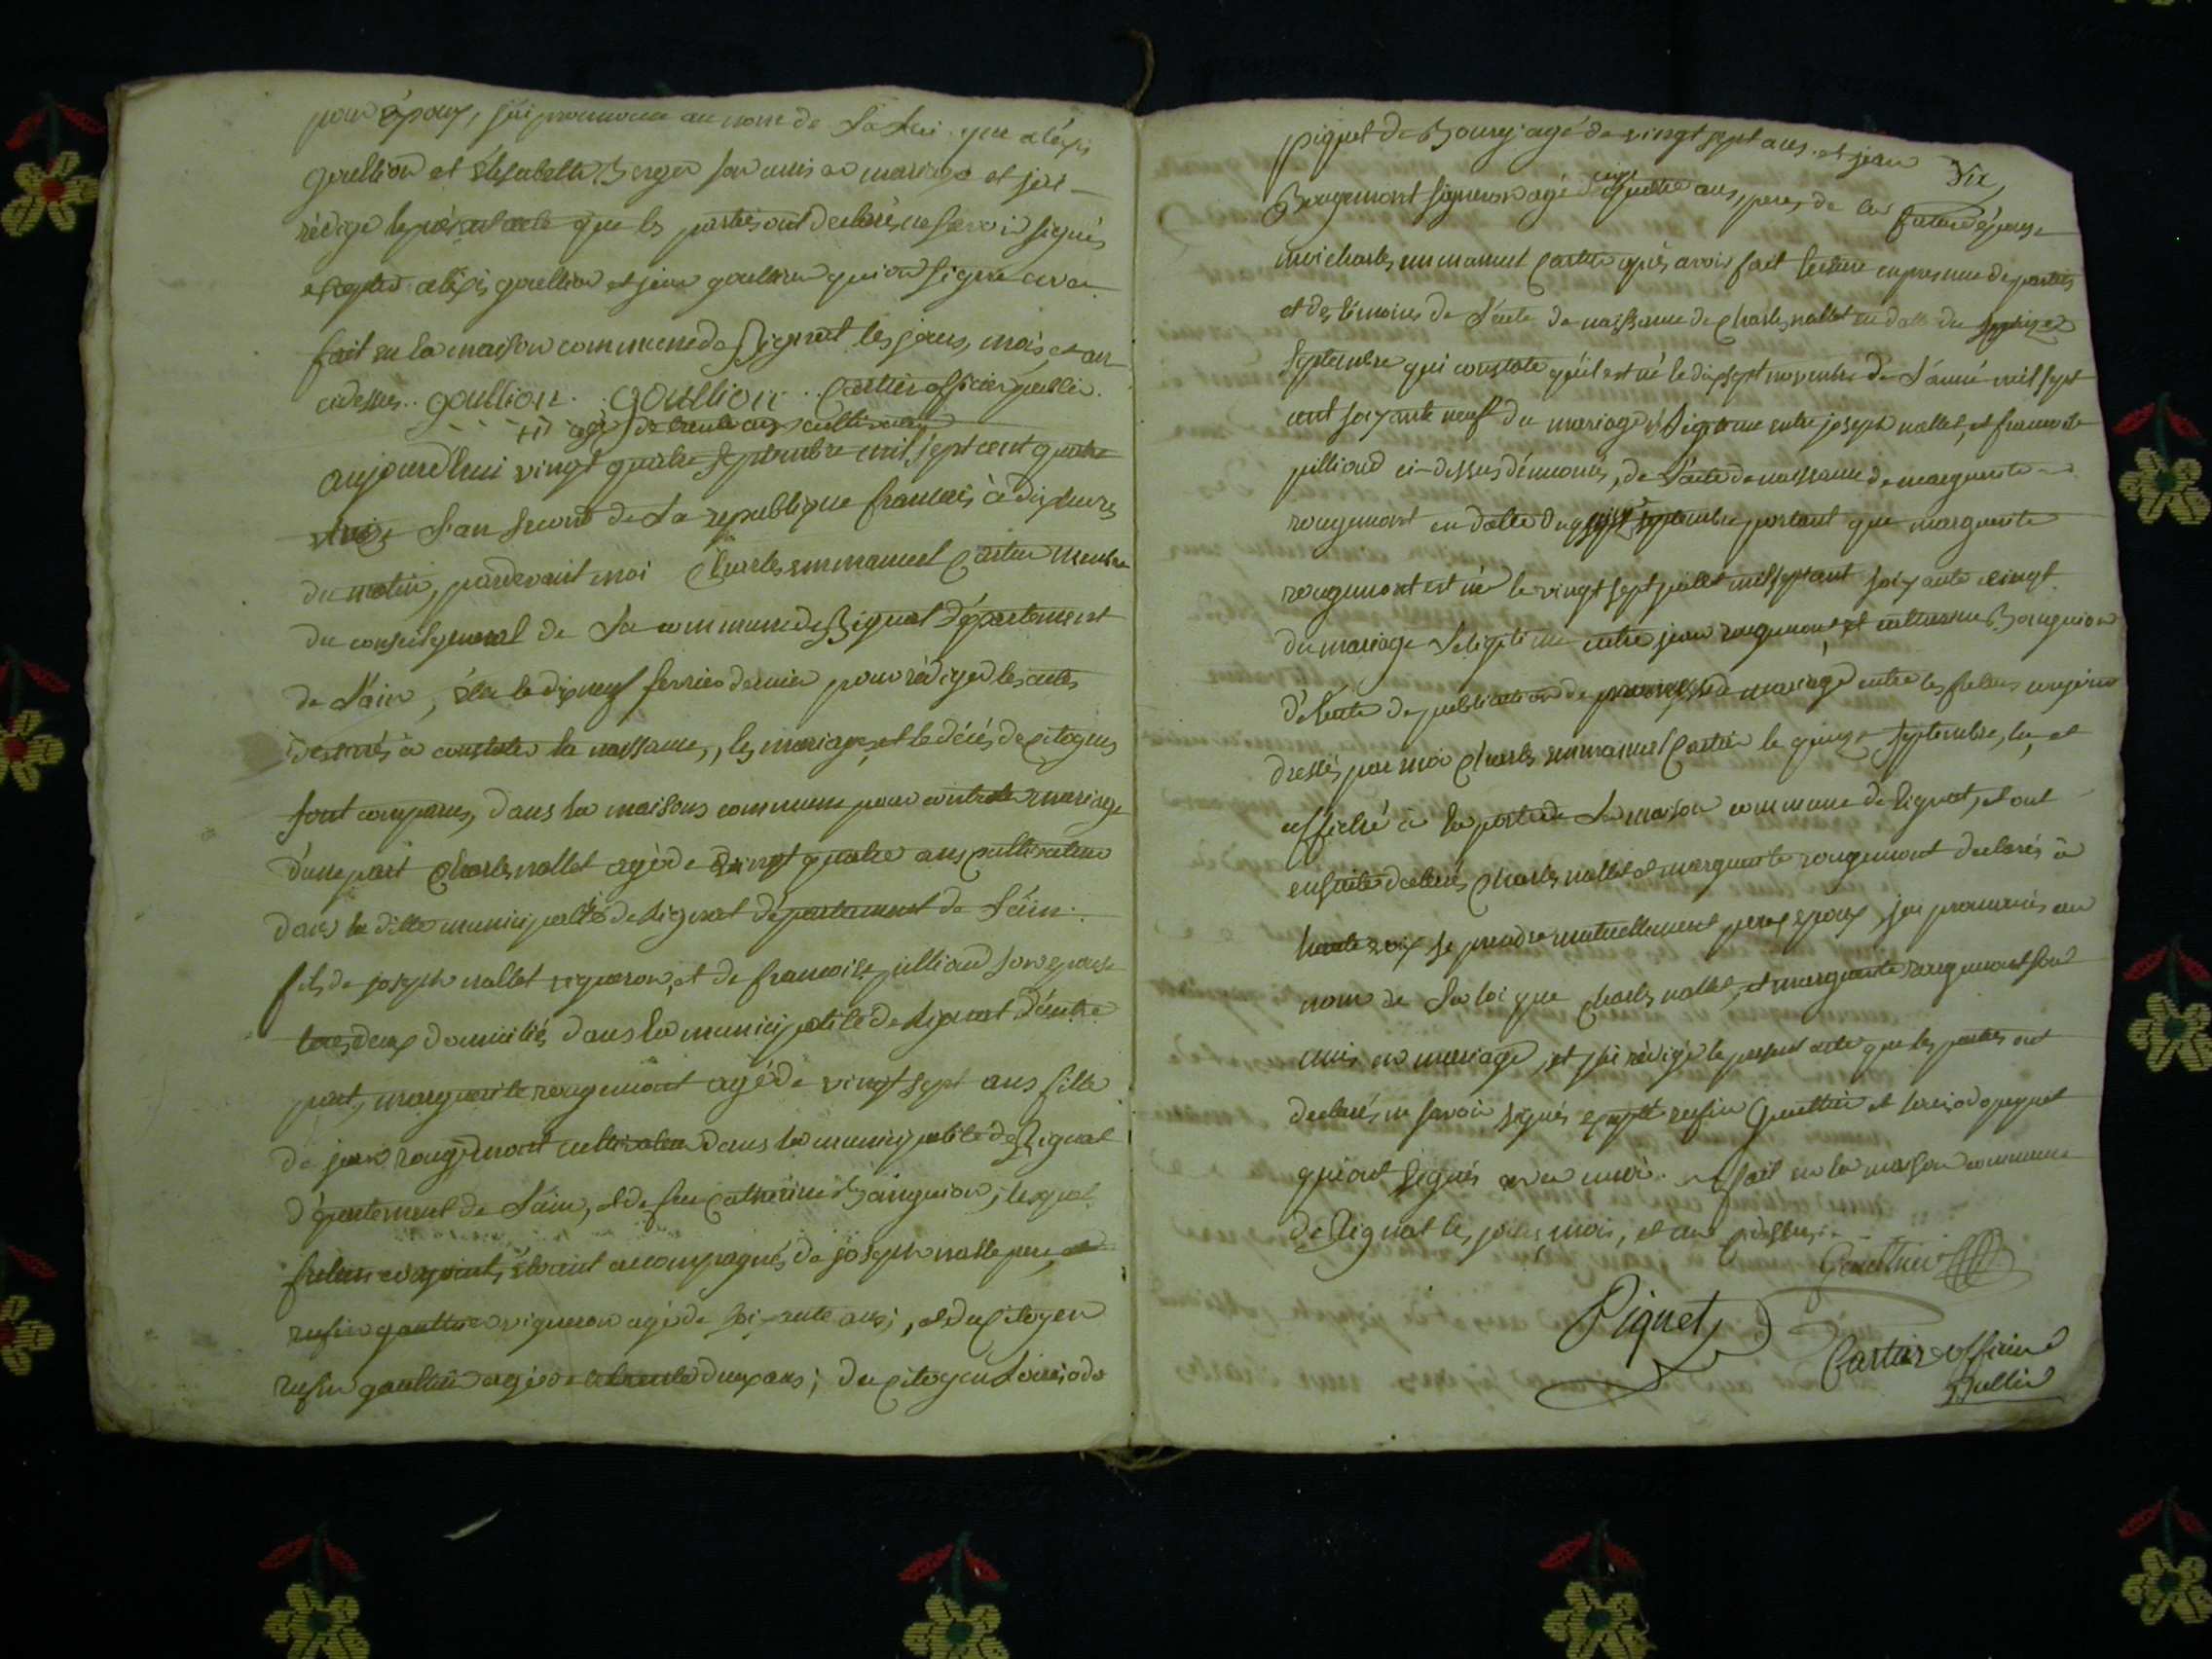 pour époux, j'ai prononcé au nom de La Loi que aléxis
goullion et Elisabeth Berger son unis en mariage et j'ai
rédigé le présent acte que les parties ont declarés ne savoir signés
excepter aléxis goullion et jean goullion qui on signé avec
fait en la maison commune de Rignat les jours, mois et an
cidessus. goullion. goullion. Cartier officier public.
aujourd'hui vingt quatre septembre mil sept cent quatre
L'an second de La republique francais, à dix heures
du matin, pardevant moi Charles emmanuel Cartier membre
du conseil general de La commune de Rignat département
de L'ain, élu le dix neuf fevrier dernier pour rédiger les actes
destinés à constater la naissance, les mariages, et le décés de citoyens
sont comparus, dans la maisons commune pour contracter mariage
d'une part Charles nallet agé de vingt quatre ans cultivateur
dans la ditte municipalité de Rignat département de L'ain.
fils de joseph nallet vigneron, et de francoise pilliand son epouse
tous deux domiciliés dans la municipalité de Rignat d'autre
part, marguerite rougemont agé de vingt sept ans fille
de jean rougemont cultivateur dans la municipalité de Rignat
département de L'ain, et de feu Catherine Banguion, lesquel
futurs conjoint, étoient accompagnés de joseph nalle pere,
rufin gauthier vigneron agé de ans, et du Citoyen
rufin gauthier agé de trente deux ans; du citoyen
piquet de Bourg agé de vingt sept ans. et jean
dix
Rougemont vigneron agé ans, pere, de la future épouse
moi charles emmanuel Cartier après avoir fait lecture en presence de parties
et des témoins de L'acte de naissance de Charles nallet en datte du
septembre qui constate qu'il est né le dix sept novembre de L'anné mil sept
cent soixante neuf du mariage Légitime entre joseph nallet, et francoise
pilliand ci-dessus dénommés, de L'acte de naissance de marguerite
rougemont en datte du septembre portant que marguerite
rougemont est né le vingt sept juillet mil sept cent soixante
du mariage Legitime entre jean rougemont, et catherine Banguion
de L'acte de publication de promesse de mariage entre les futurs conjoints
dressés par moi Charles emmanuel Cartier le quinze septembre, lu, et
affiché à la porte de La maison commune de Rignat, et ont
ensuite declarés Charles nallet et marguerite rougemont declarés à
haute voix se prendre mutuellement pour epoux, j'ai prononcés au
nom de La loi que Charles nallet, et marguerite rougemont son
unis en mariage, et j'ai rédigé le present acte que les parties ont
declarés ne savoir signés excepté rufin Gauthier et piquet
qui ont signés avec moi. fait en la maison commune
de Rignat les jours, mois, et an cidessus.
Gauthier
Piquet
Cartier officier
Public